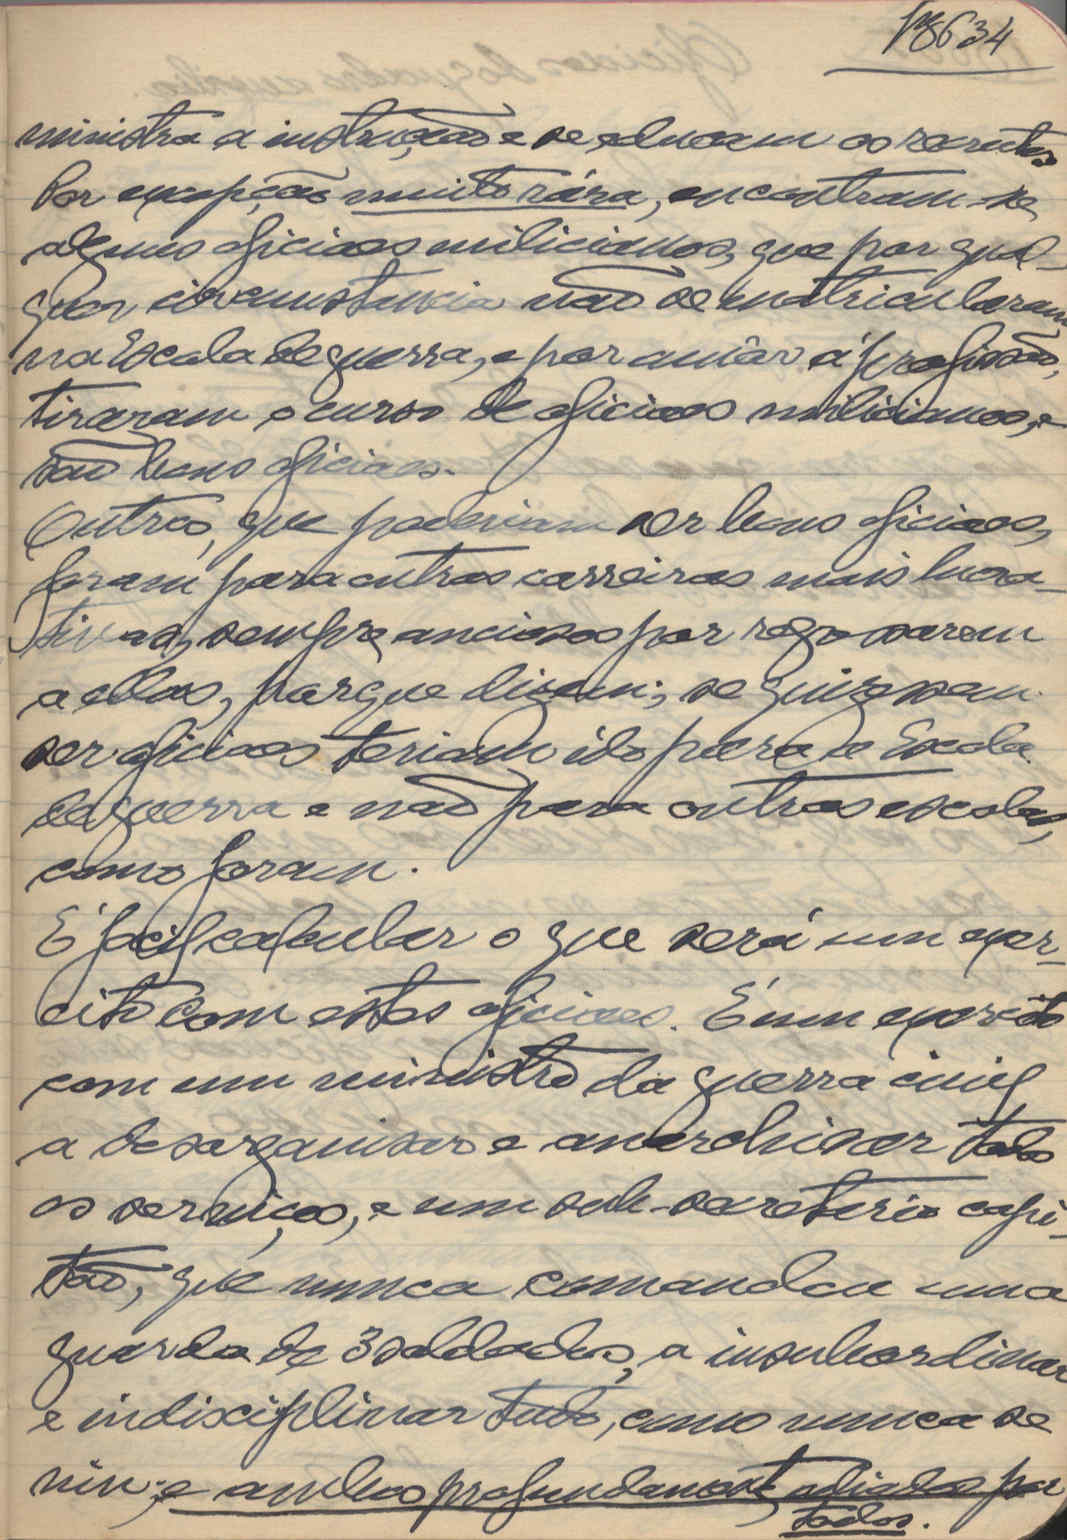 8634
ministra a instrução e se educam os recrutas
Por excepção muito rára, encontram-se
alguns oficiaes milicianos, que por qual-
quer circunstancia não se matricularam
na Escola de guerra, e por amôr á profissão,
tiraram o curso de oficiaes milicianos, e
são bons oficiaes.
Outros, que poderiam ser bons oficiaes,
foram para outras carreiras mais lucra-
tivas, sempre anciosos por regressarem
a ellas, porque dizem; se quizessem
ser oficiaes teriam ido para a Escola
de guerra e não para outras escolas,
como foram.
E' facil calcular o que será um exer-
cito com estes oficiaes. É um exercito
com um ministro da guerra civil
a desorganisar e anarchisar todos
os serviços, e um sub-secretario capi-
tão, que nunca comandou uma
guarda de 3 soldados, a insubordinar
e indisciplinar tudo, como nunca se
viu; e ambos profundamente odiados por
todos.